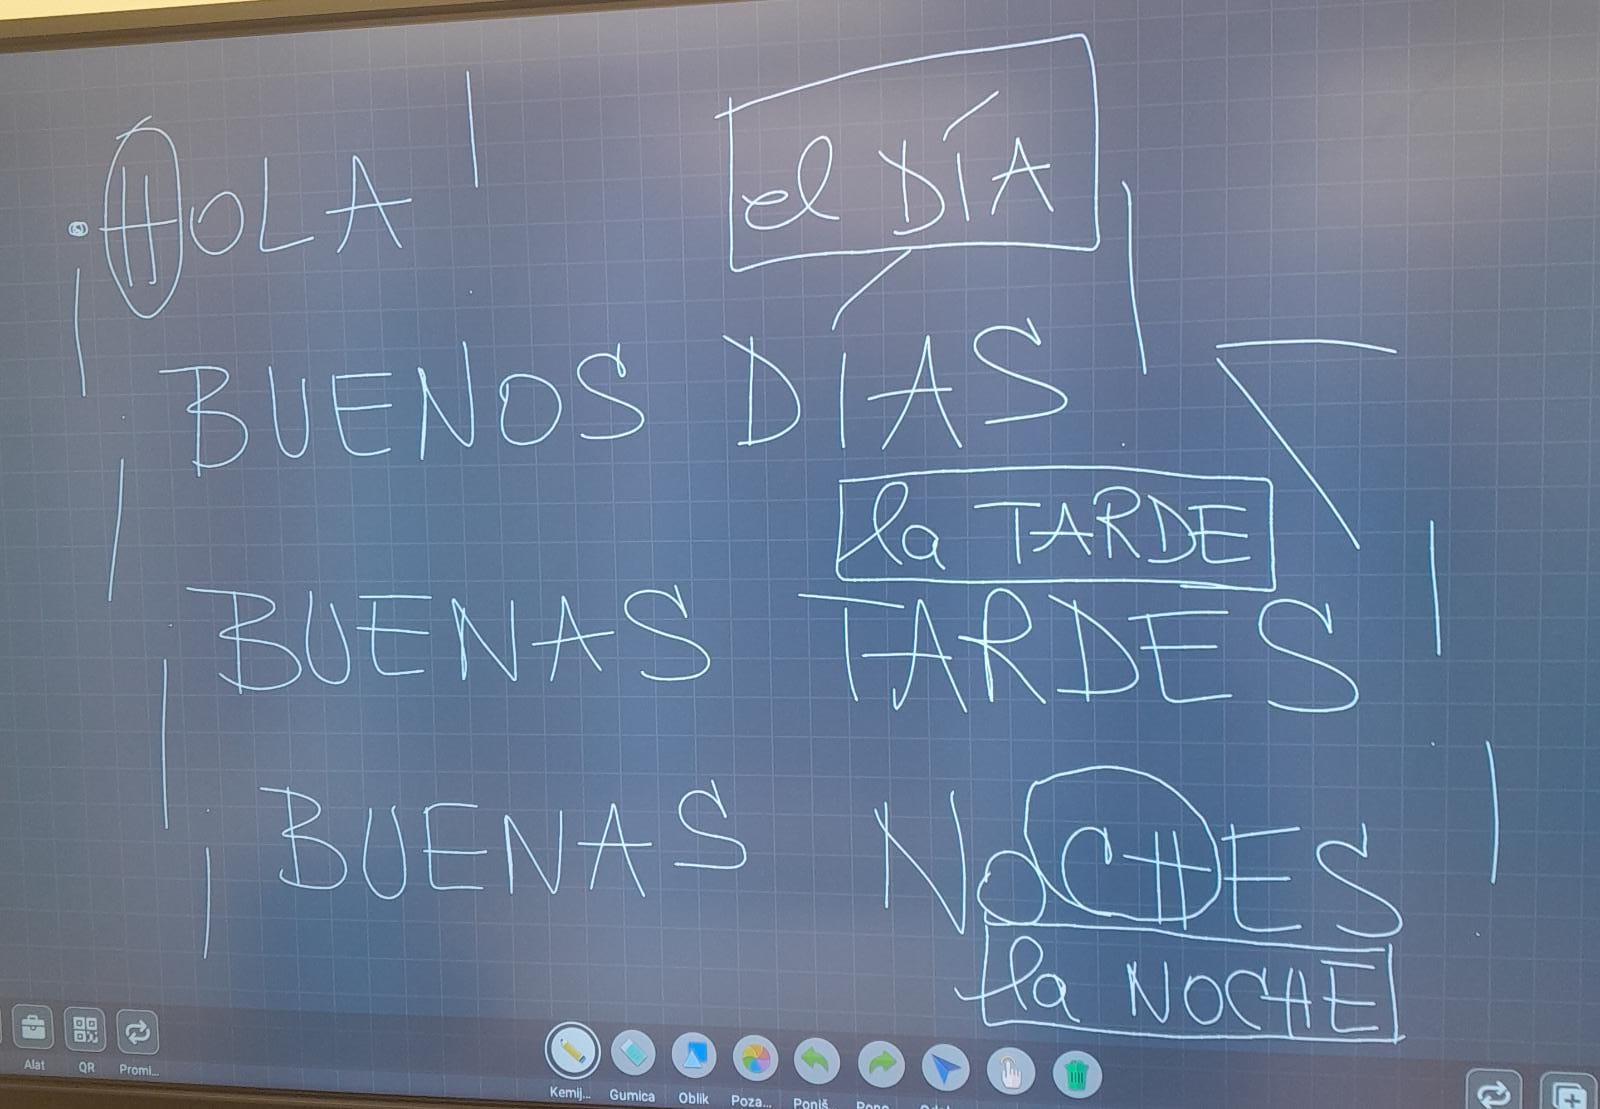 ¡HOLA!
el DÍA
¡BUENOS DÍAS!
la TARDE
¡BUENAS TARDES!
¡BUENAS NOCHES!
la NOCHE
Alat QR Promi...
Kemij... Gumica Oblik Poza... Poniš